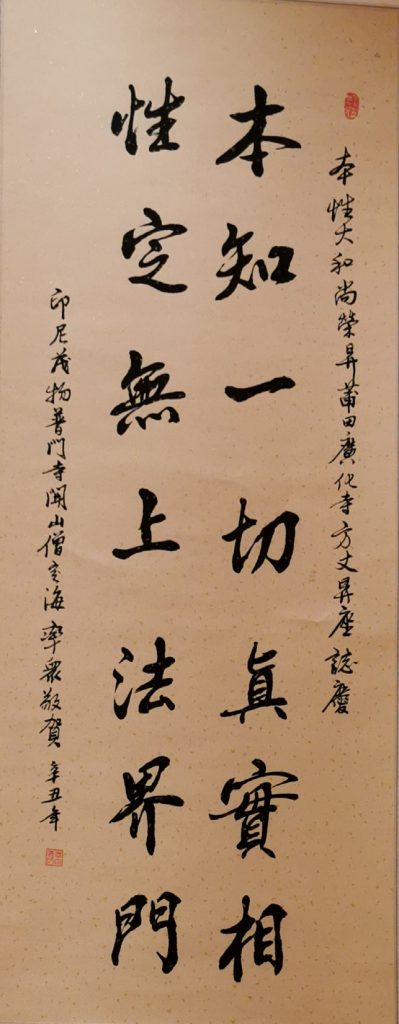 本性大和尚榮昇莆田廣化寺方丈昇座誌慶
本知一切真實相
性定無上法界門
印尼茂物普門寺開山僧定海率眾敬賀 辛丑年